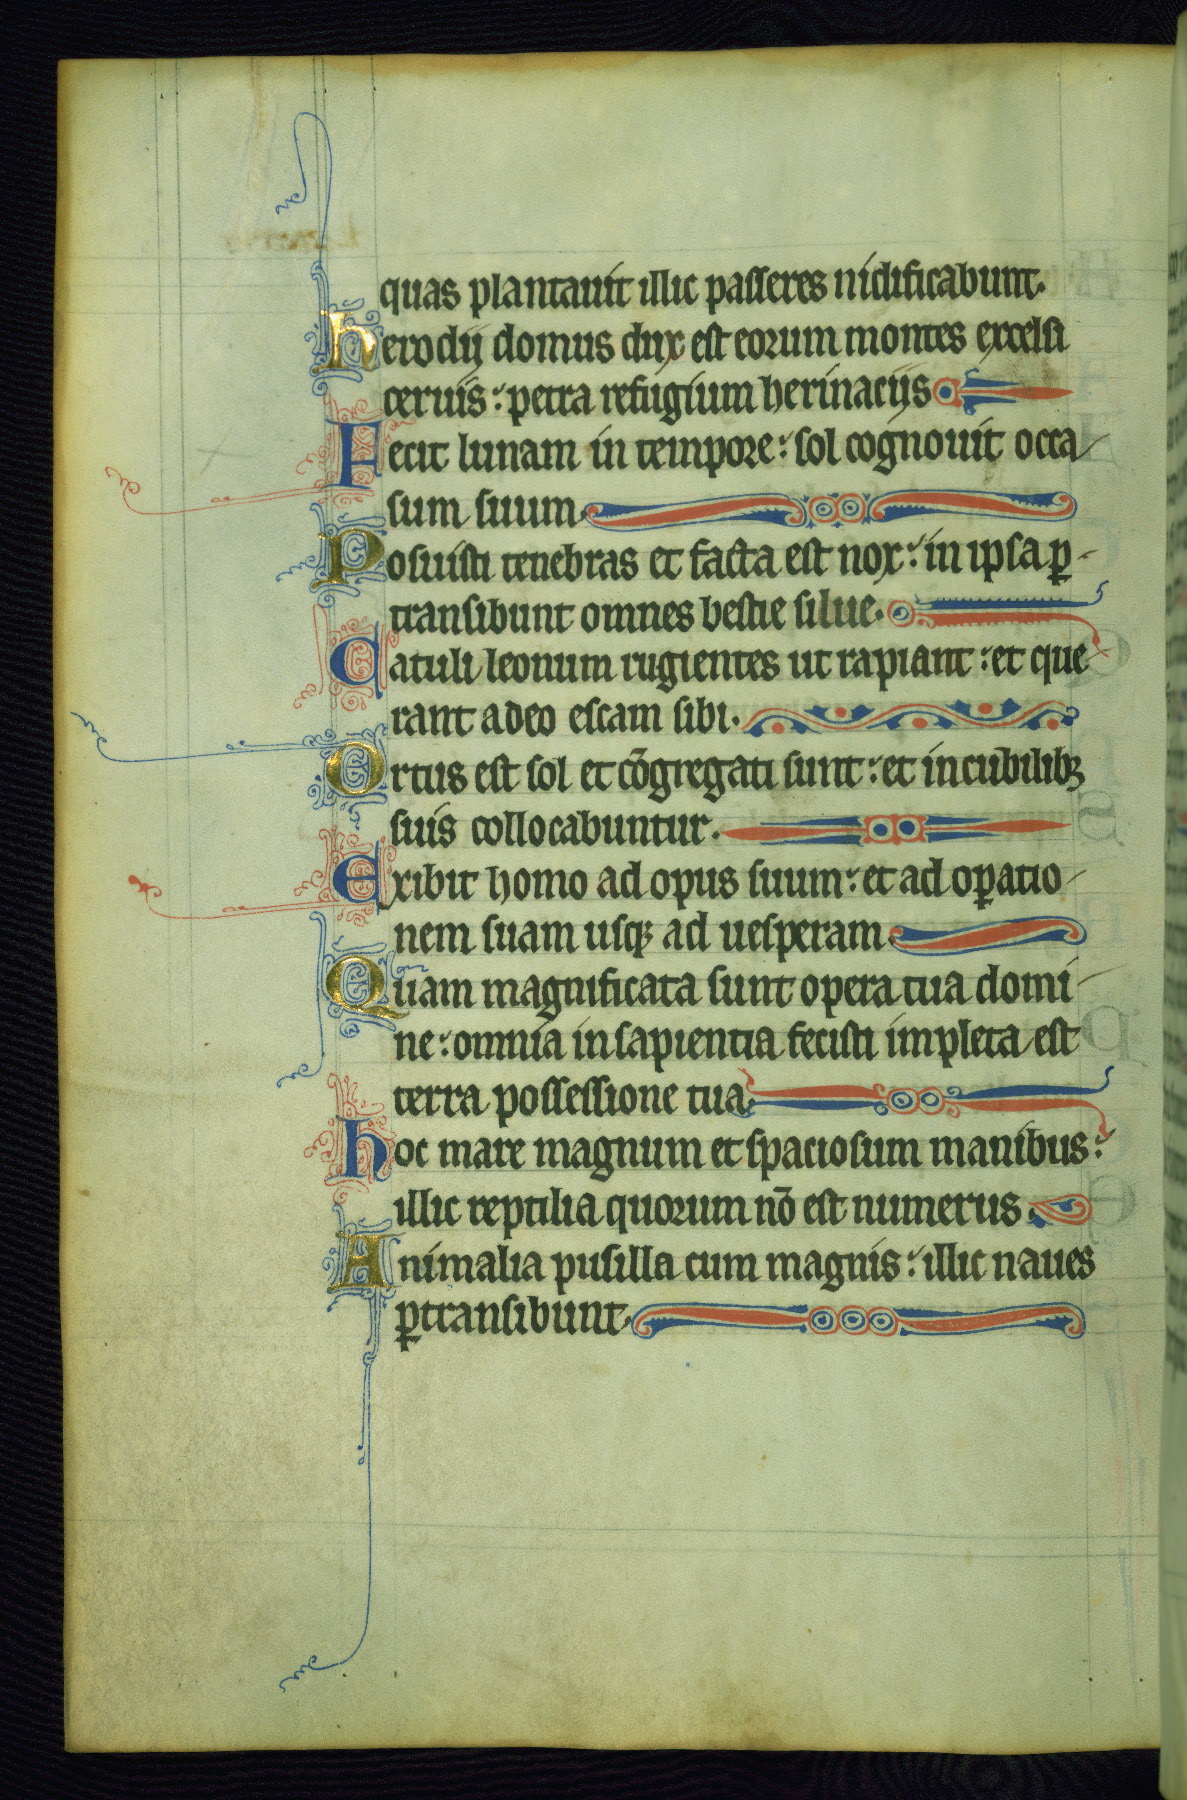 quas plantauit illic passeres nidificabunt.
herodij domus dux est eorum montes excelsi
ceruis: petra refugium herinacijs
Fecit lunam in tempore: sol cognouit occa
sum suum
Posuisti tenebras et facta est nox: in ipsa ꝑ-
transibunt omnes bestie silue.
Catuli leonum rugientes ut rapiant: et que
rant a deo escam sibi.
Ortus est sol et cōgregati sunt: et in cubilibꝫ
suis collocabuntur.
Exibit homo ad opus suum: et ad oꝑatio
nem suam usqꝫ ad uesperam.
Quam magnificata sunt opera tua domi
ne: omnia in sapientia fecisti impleta est
terra possessione tua.
hoc mare magnum et spaciosum manibus:
illic reptilia quorum nō est numerus.
Animalia pusilla cum magnis: illic naues
ꝑtransibunt.